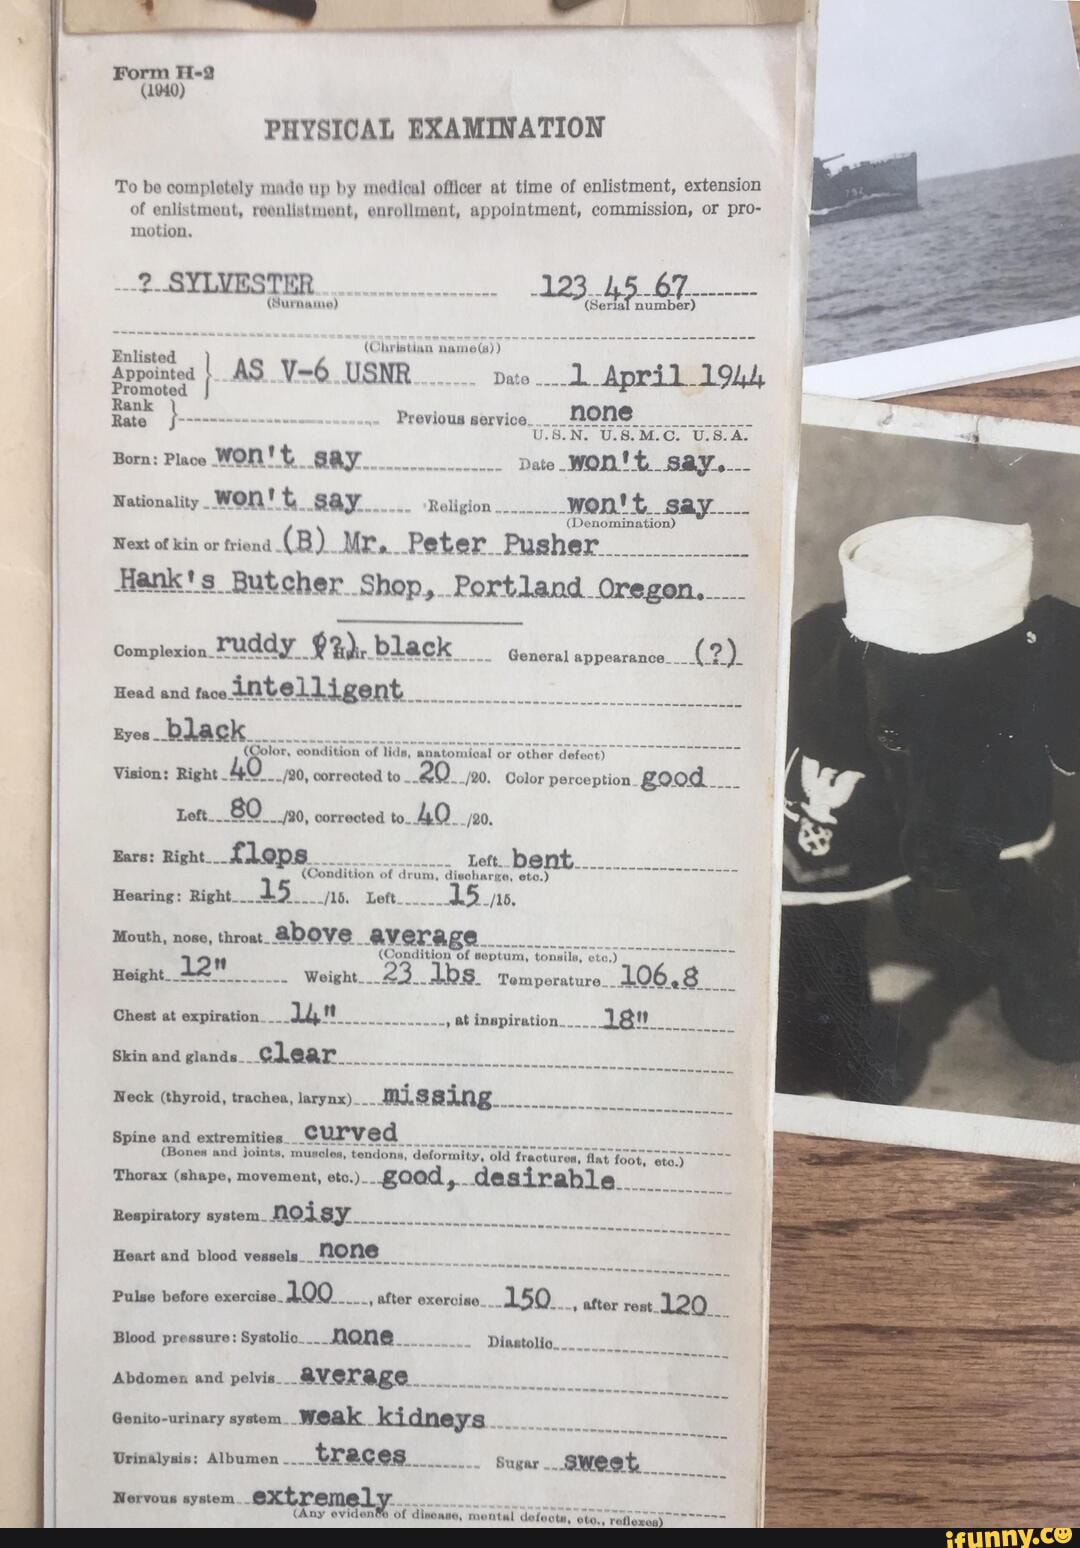 Form H-2
(1940)
PHYSICAL EXAMINATION
To be completely made up by medical officer at time of enlistment, extension
of enlistment, reenlistment, enrollment, appointment, commission, or pro-
motion.
? SYLVESTER 123 45 67
(Surname) (Serial number)
(Christian name(s))
Enlisted
Appointed } AS V-6 USNR Date 1 April 1944
Promoted
Rank
Rate } Previous service none
U.S.N. U.S.M.C. U.S.A.
Born: Place won't say Date won't say.
Nationality won't say Religion won't say
(Denomination)
Next of kin or friend (B) Mr. Peter Pusher
Hank's Butcher Shop, Portland Oregon.
Complexion ruddy (?) Hair black General appearance (?)
Head and face intelligent
Eyes black
(Color, condition of lids, anatomical or other defect)
Vision: Right 40 /20, corrected to 20 /20. Color perception good
Left 80 /20, corrected to 40 /20.
Ears: Right flops Left bent
(Condition of drum, discharge, etc.)
Hearing: Right 15 /15. Left 15 /15.
Mouth, nose, throat above average
(Condition of septum, tonsils, etc.)
Height 12" Weight 23 lbs Temperature 106.8
Chest at expiration 14", at inspiration 18"
Skin and glands clear
Neck (thyroid, trachea, larynx) missing
Spine and extremities curved
(Bones and joints, muscles, tendons, deformity, old fractures, flat foot, etc.)
Thorax (shape, movement, etc.) good, desirable
Respiratory system noisy
Heart and blood vessels none
Pulse before exercise 100, after exercise 150, after rest 120
Blood pressure: Systolic none Diastolic
Abdomen and pelvis average
Genito-urinary system weak kidneys
Urinalysis: Albumen traces Sugar sweet
Nervous system extremely
(Any evidence of disease, mental defects, etc., reflexes)
ifunny.co